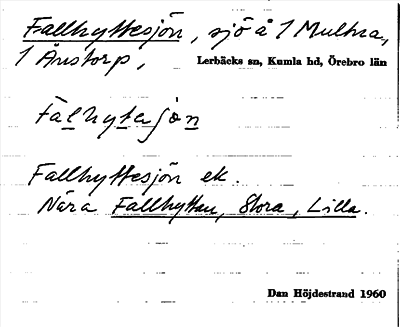 Fallhyttesjön, sjö å 1 Multna,
1 Ånstorp,
Lerbäcks sn, Kumla hd, Örebro län
Falhytesjön
Fallhyttesjön ek.
Nära Fallhyttan, Stora, Lilla.
Dan Höjdestrand 1960